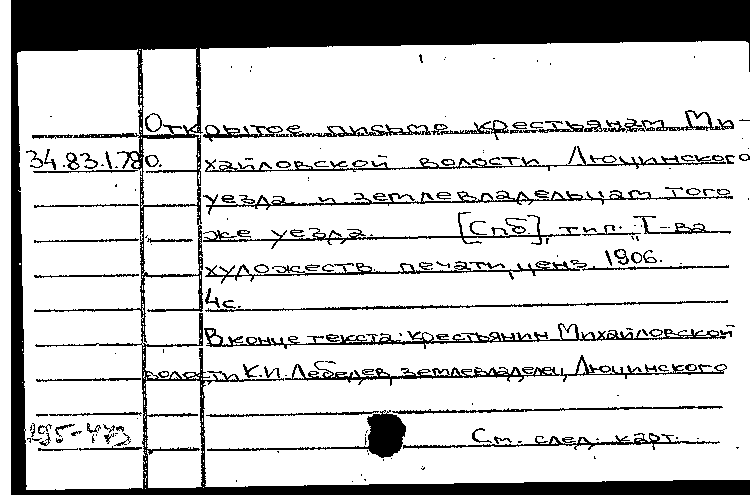 Открытое письмо крестьянам Ми-
34.83.1.780. хайловской волости, Люцинского
уезда и землевладельцам того
же уезда. [Спб], тип. "Т-ва
художеств. печати, ценз. 1906.
4с.
В конце текста: крестьянин Михайловской
волости К.И. Лебедев, землевладелец Люцинского
295-473 См. след. карт.